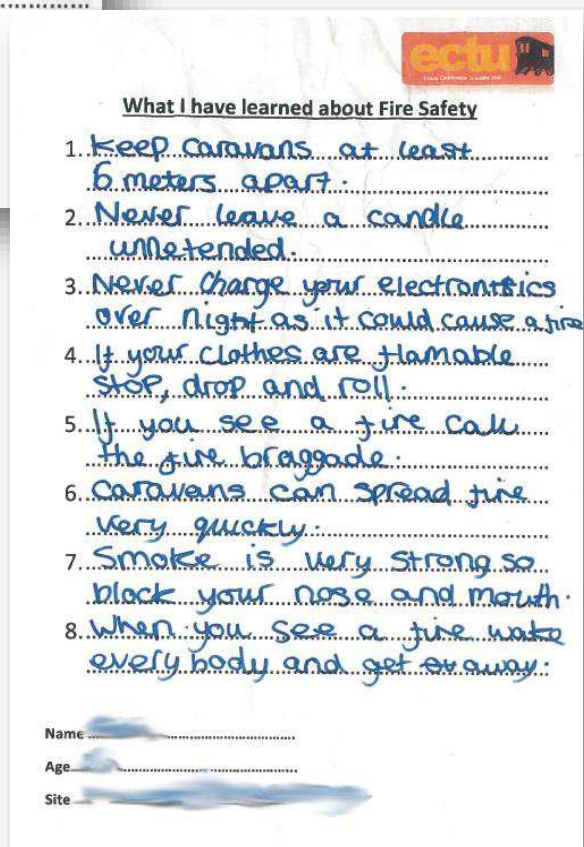 ectu
What I have learned about Fire Safety
1. Keep caravans at least
6 meters apart.
2. Never leave a candle
unnetended.
3. Never charge your electrontics
over night as it could cause a fire
4. If your clothes are flamable
stop, drop and roll.
5. If you see a fire call
the fire braggade.
6. caravans can spread fire
very quickly.
7. Smoke is very strong so
block your nose and mouth.
8. When you see a fire wake
every body and get away.
Name
Age
Site